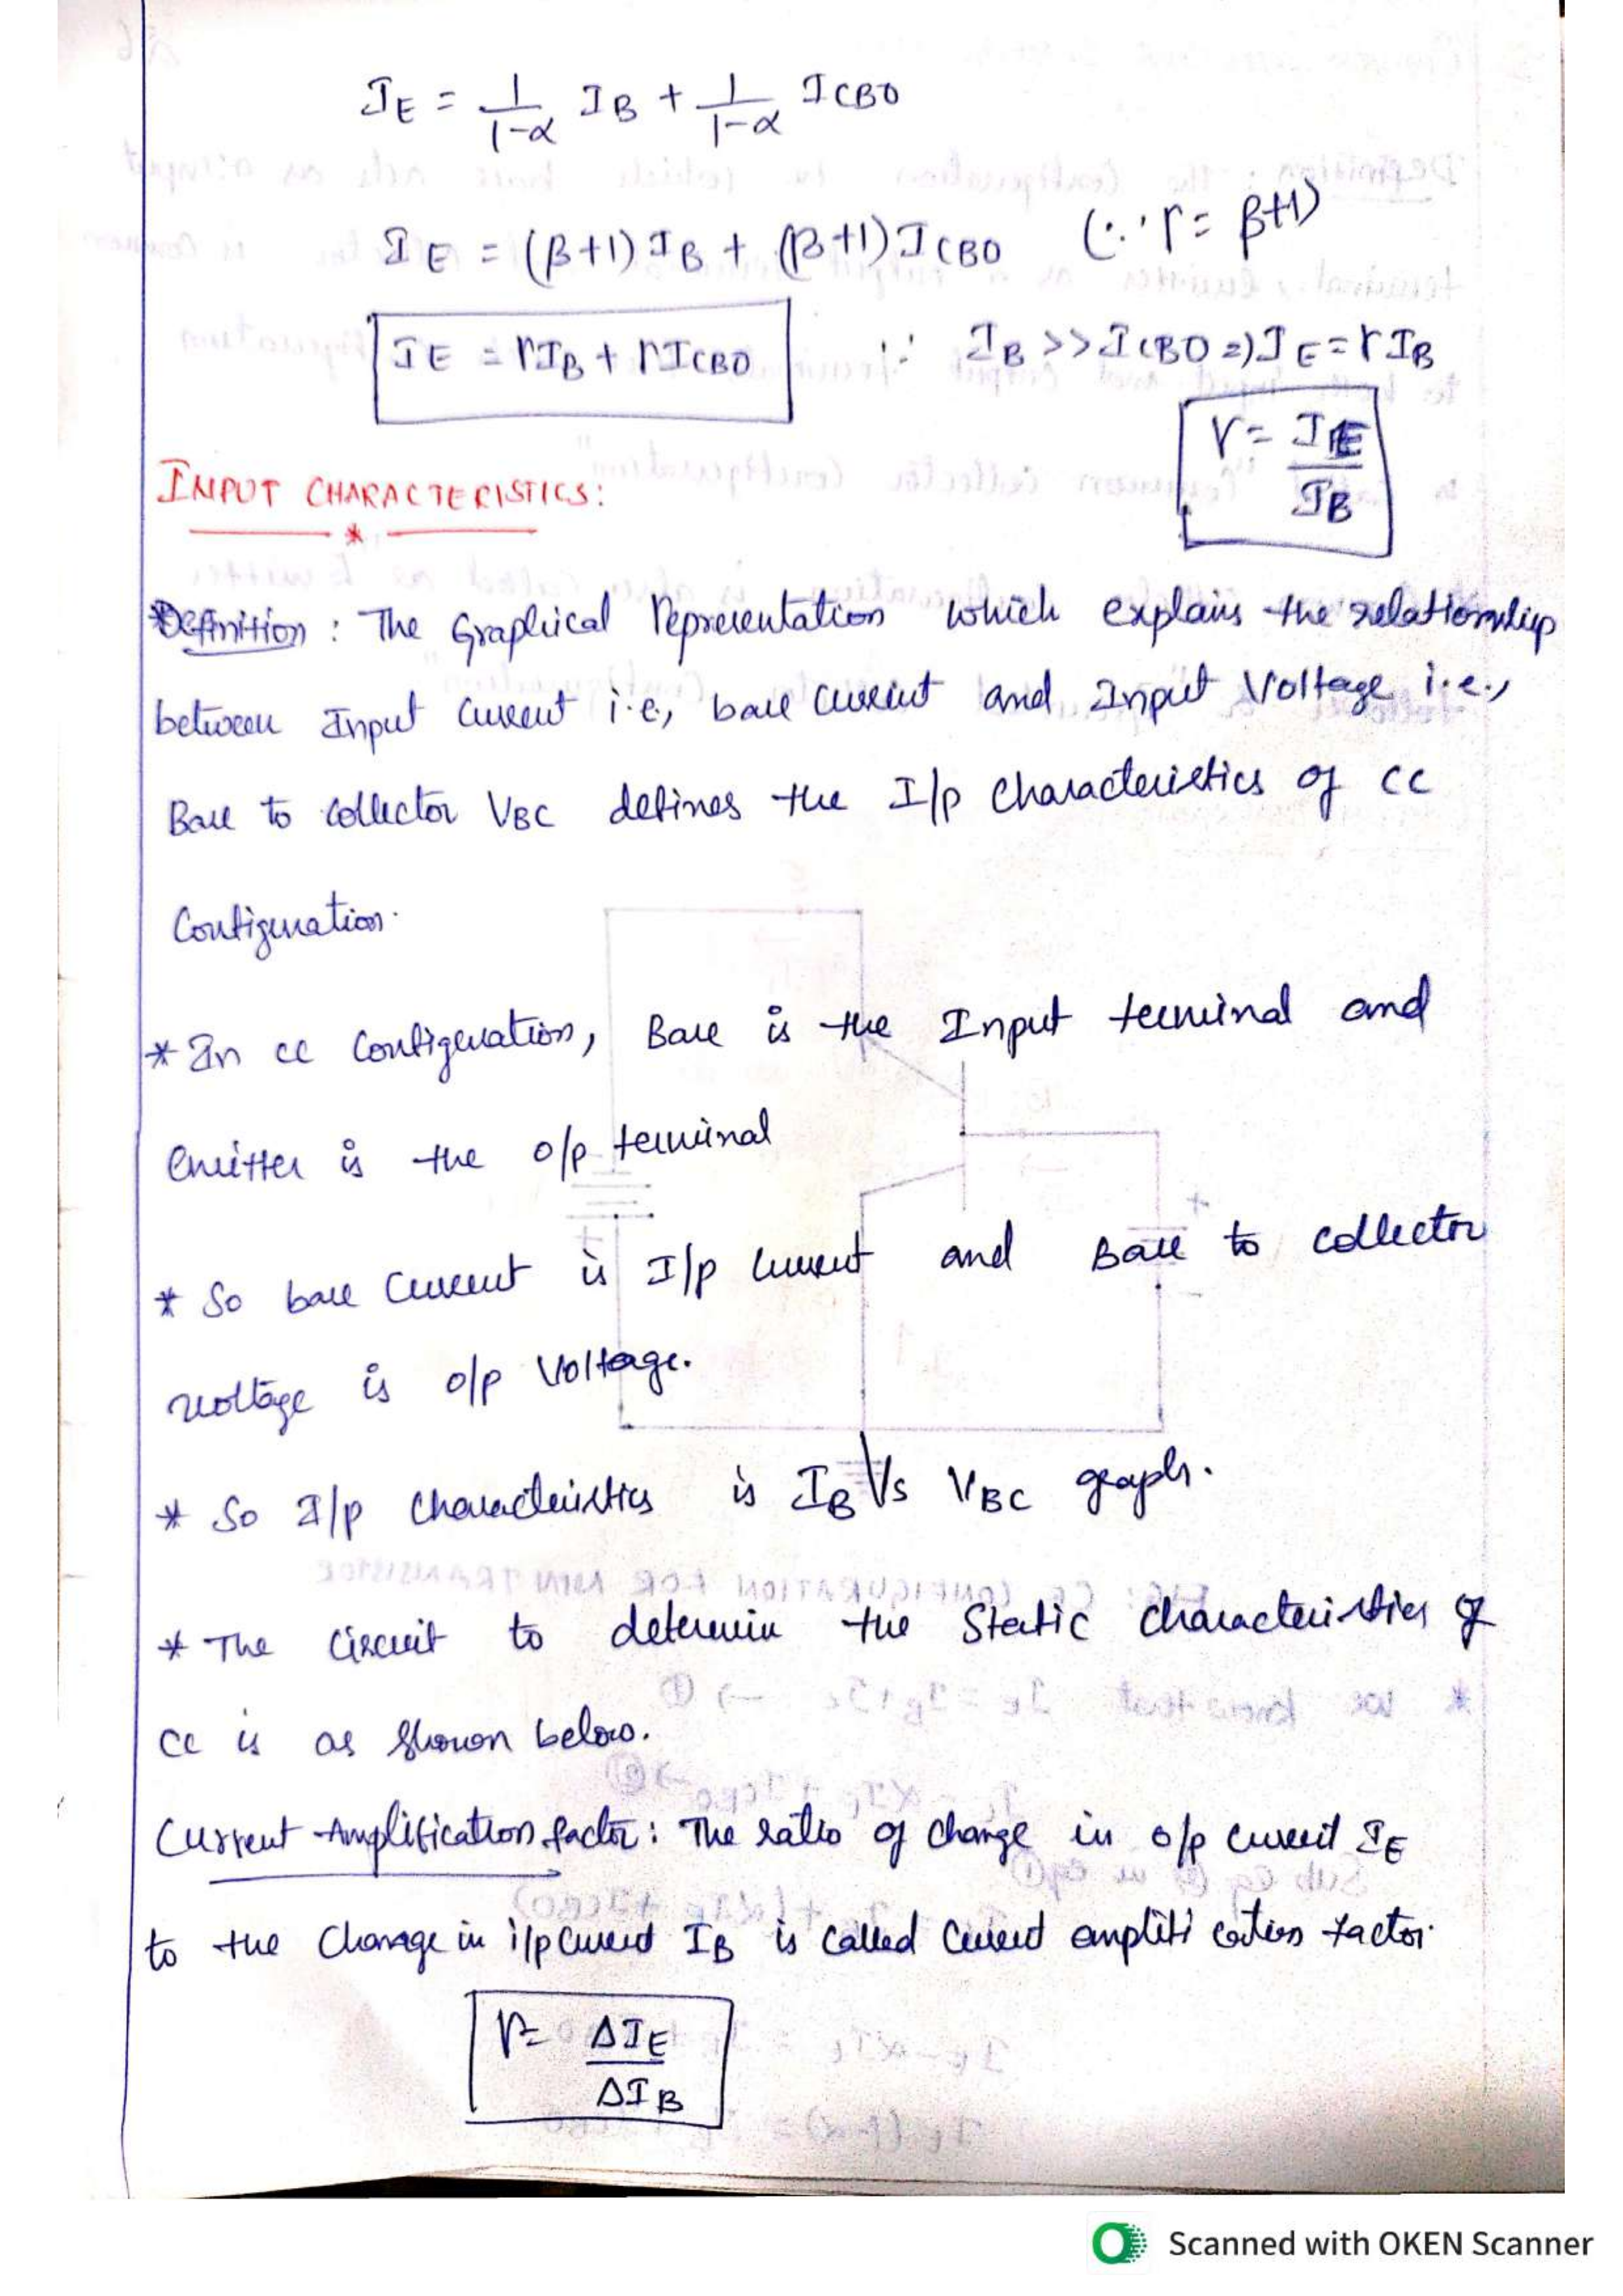 I_E = 1/(1-α) I_B + 1/(1-α) I_CBO
I_E = (β+1) I_B + (β+1) I_CBO (∵ r = β+1)
I_E = r I_B + r I_CBO ∵ I_B >> I_CBO => I_E = r I_B
r = I_E / I_B
INPUT CHARACTERISTICS:
*Definition : The Graphical Representation which explains the relationship
between Input Current i.e, base current and Input Voltage i.e.,
Base to collector V_BC defines the I/p characteristics of CC
Configuration.
* In CC Configuration, Base is the Input terminal and
emitter is the o/p terminal
* So base Current is I/p current and Base to collector
voltage is o/p Voltage.
* So I/p characteristics is I_B Vs V_BC graph.
* The Circuit to determin the Static characteristics of
CC is as shown below.
Current Amplification factor : The ratio of change in o/p current I_E
to the Change in i/p current I_B is called Current amplification factor.
r = ΔI_E / ΔI_B
Scanned with OKEN Scanner